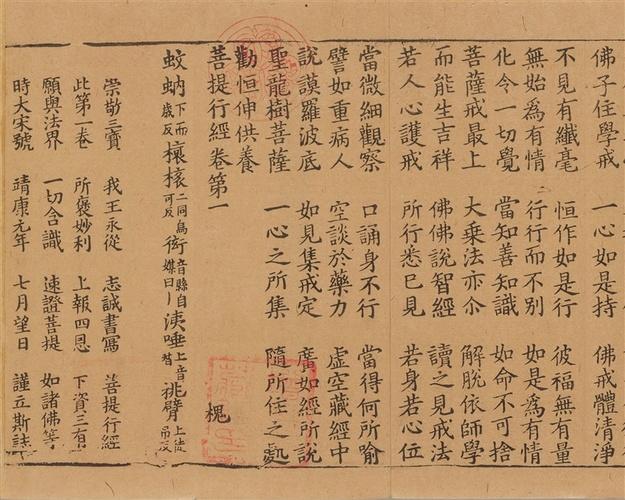 佛子住學戒 一心如是持 佛戒體清淨
不見有纖毫 恒作如是行 彼福無有量
無始為有情 行行而不別 如是為有情
化令一切覺 當知善知識 如命不可捨
菩薩戒最上 大乘法亦尒 解脫依師學
而能生吉祥 佛佛說智經 讀之見戒法
若人心護戒 所行悉已見 若身若心位
當微細觀察 口誦身不行 當得何所喻
譬如重病人 空談於藥力 虛空藏經中
說謨羅波底 如見集戒定 廣如經所說
聖龍樹菩薩 一心之所集 隨所住之處
勸恒伸供養
菩提行經卷第一 槐
蚊蚋下而歲反 榱椽二同為可反 衒音縣自媒曰丨 洟唾上音替 逃臂上徒吊反
崇敬三寶 我王永從 志誠書寫 菩提行經
此第一卷 所褒妙利 上報四恩 下資三有
願與法界 一切含識 速證菩提 如諸佛等
時大宋號 靖康元年 七月望日 謹立斯誌